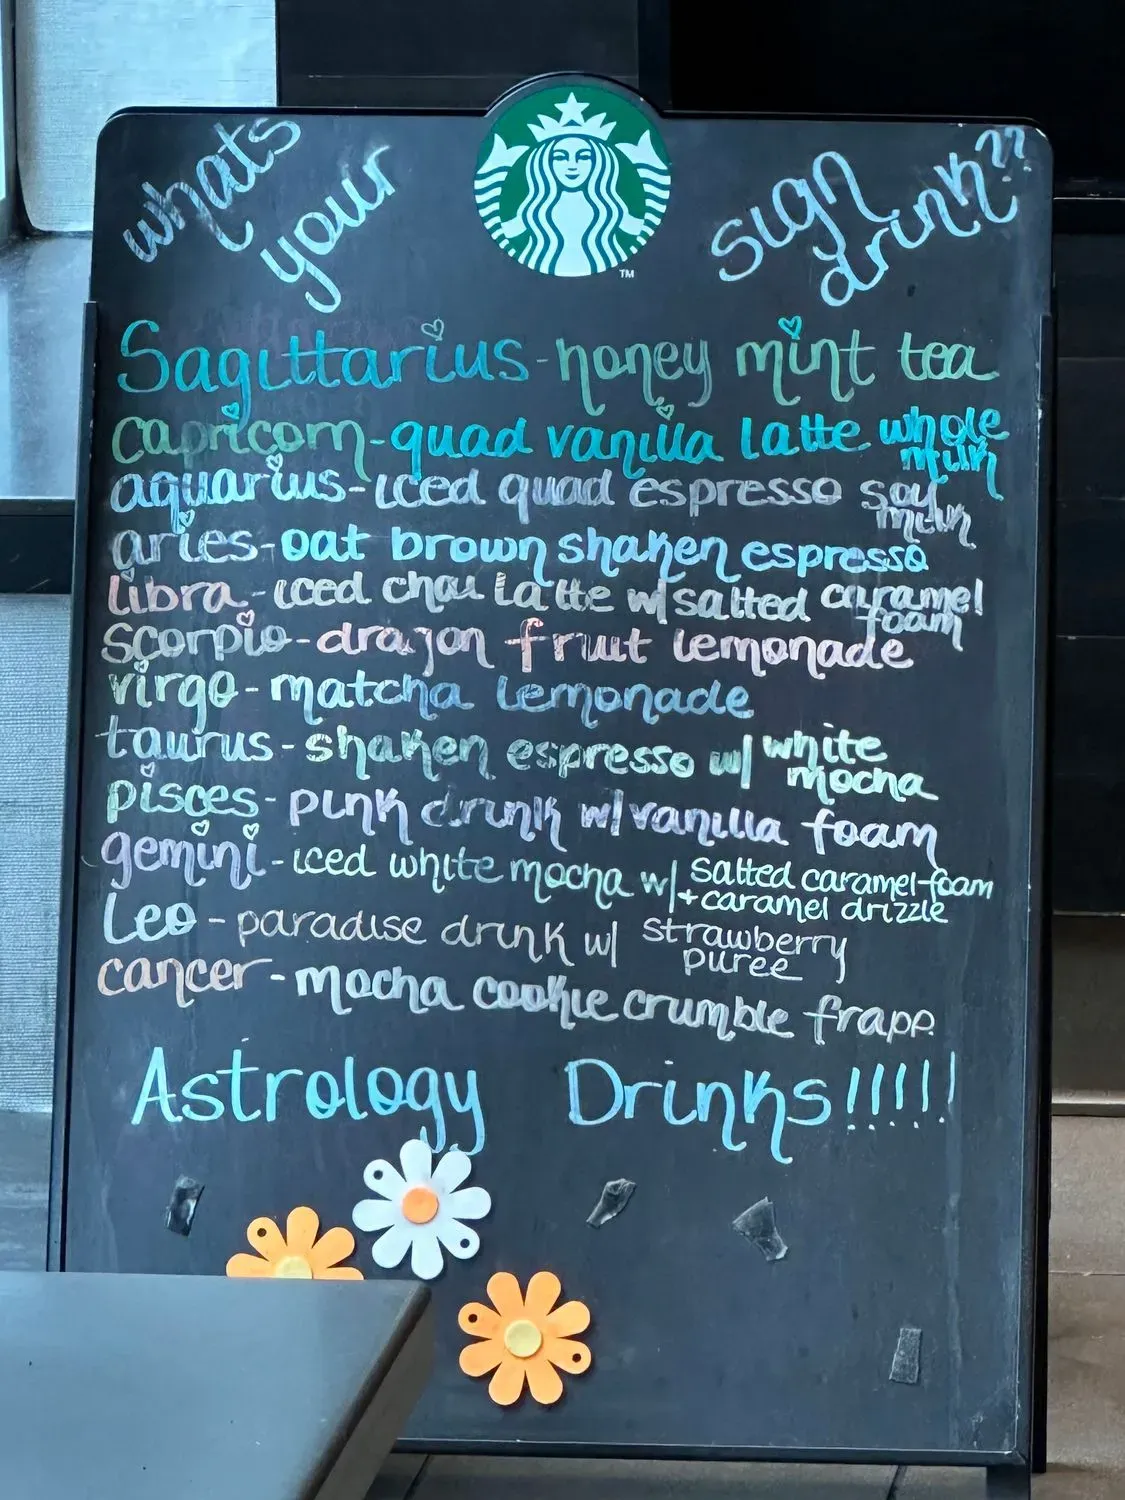 whats your sign drink??
TM
Sagittarius - honey mint tea
capricorn - quad vanilla latte whole milk
aquarius - iced quad espresso soy milk
aries - oat brown shaken espresso
libra - iced chai latte w/ salted caramel foam
scorpio - dragon fruit lemonade
virgo - matcha lemonade
taurus - shaken espresso w/ white mocha
pisces - pink drink w/ vanilla foam
gemini - iced white mocha w/ salted caramel foam + caramel drizzle
Leo - paradise drink w/ strawberry puree
cancer - mocha cookie crumble frapp
Astrology Drinks!!!!!